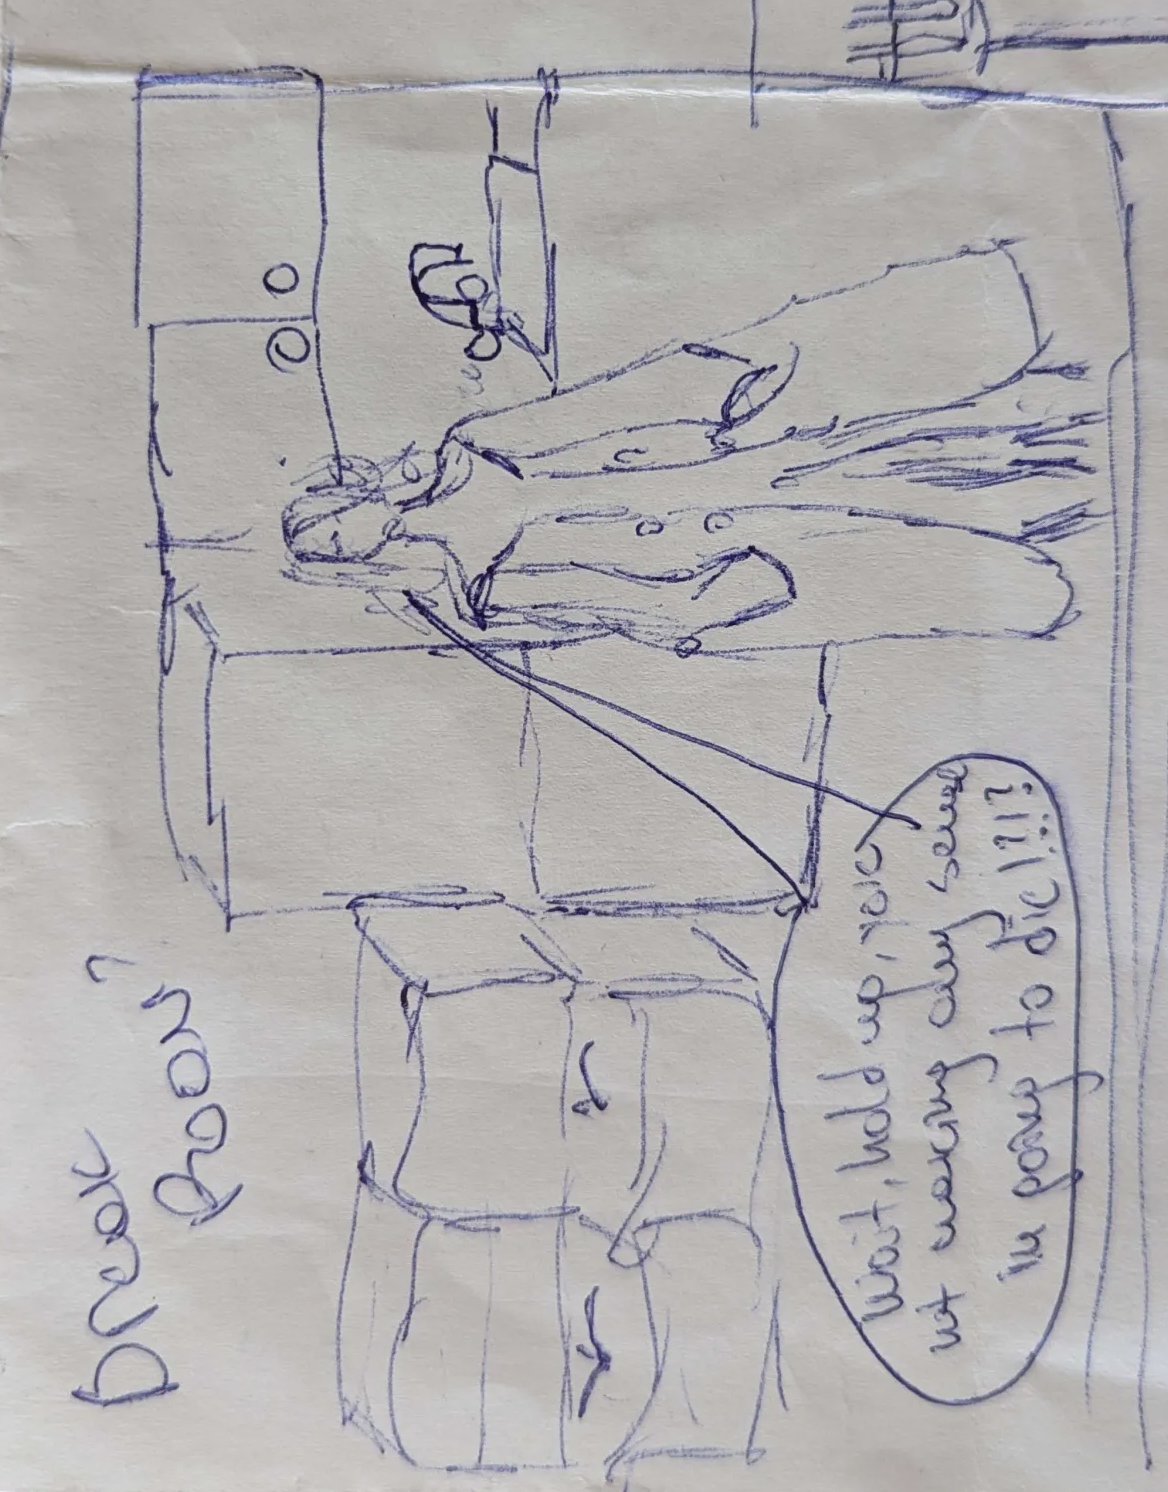 Break
Room?
Wait, hold up, your
not making any sense
im going to die!?!?!